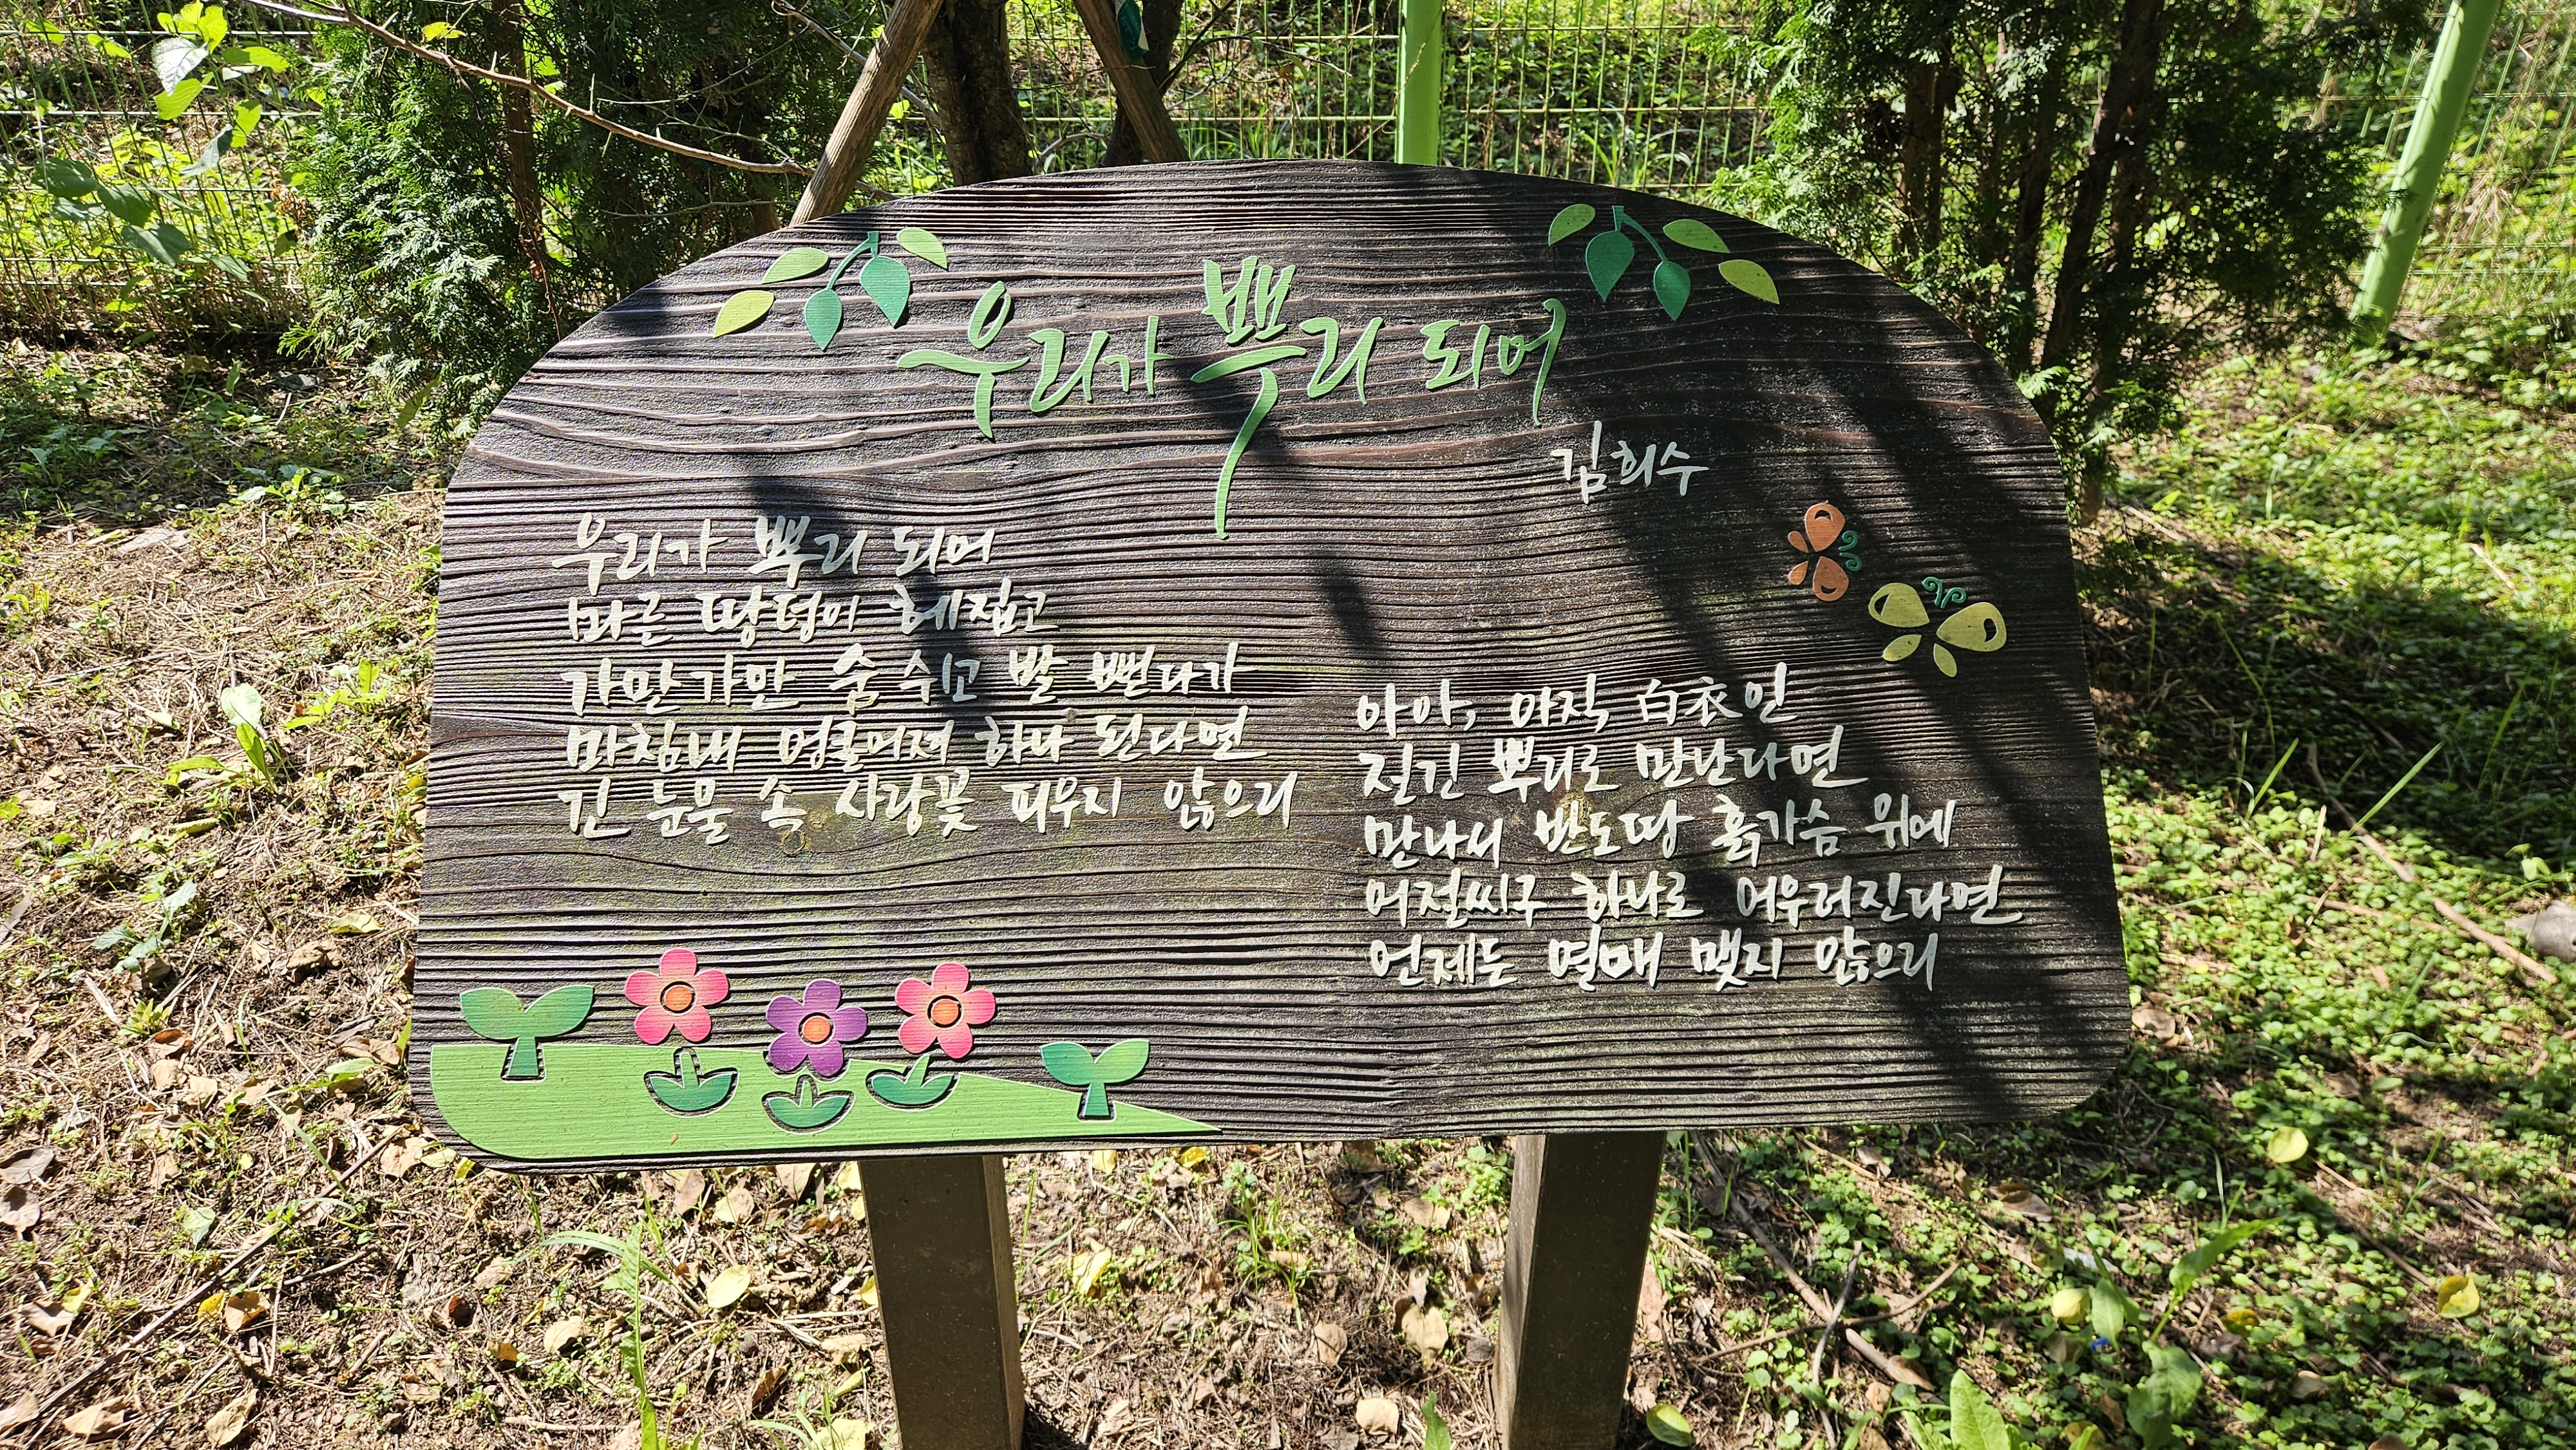 우리가 뿌리 되어
김희수
우리가 뿌리 되어
마른 땅덩이 헤집고
가만가만 숨 쉬고 발 뻗다가
마침내 엉클어져 하나 된다면
긴 눈물 속 사랑꽃 피우지 않으리
아아, 아직 白衣인
질긴 뿌리로 만난다면
만나서 반도땅 흙가슴 위에
어절씨구 하나로 어우러진다면
언제든 열매 맺지 않으리